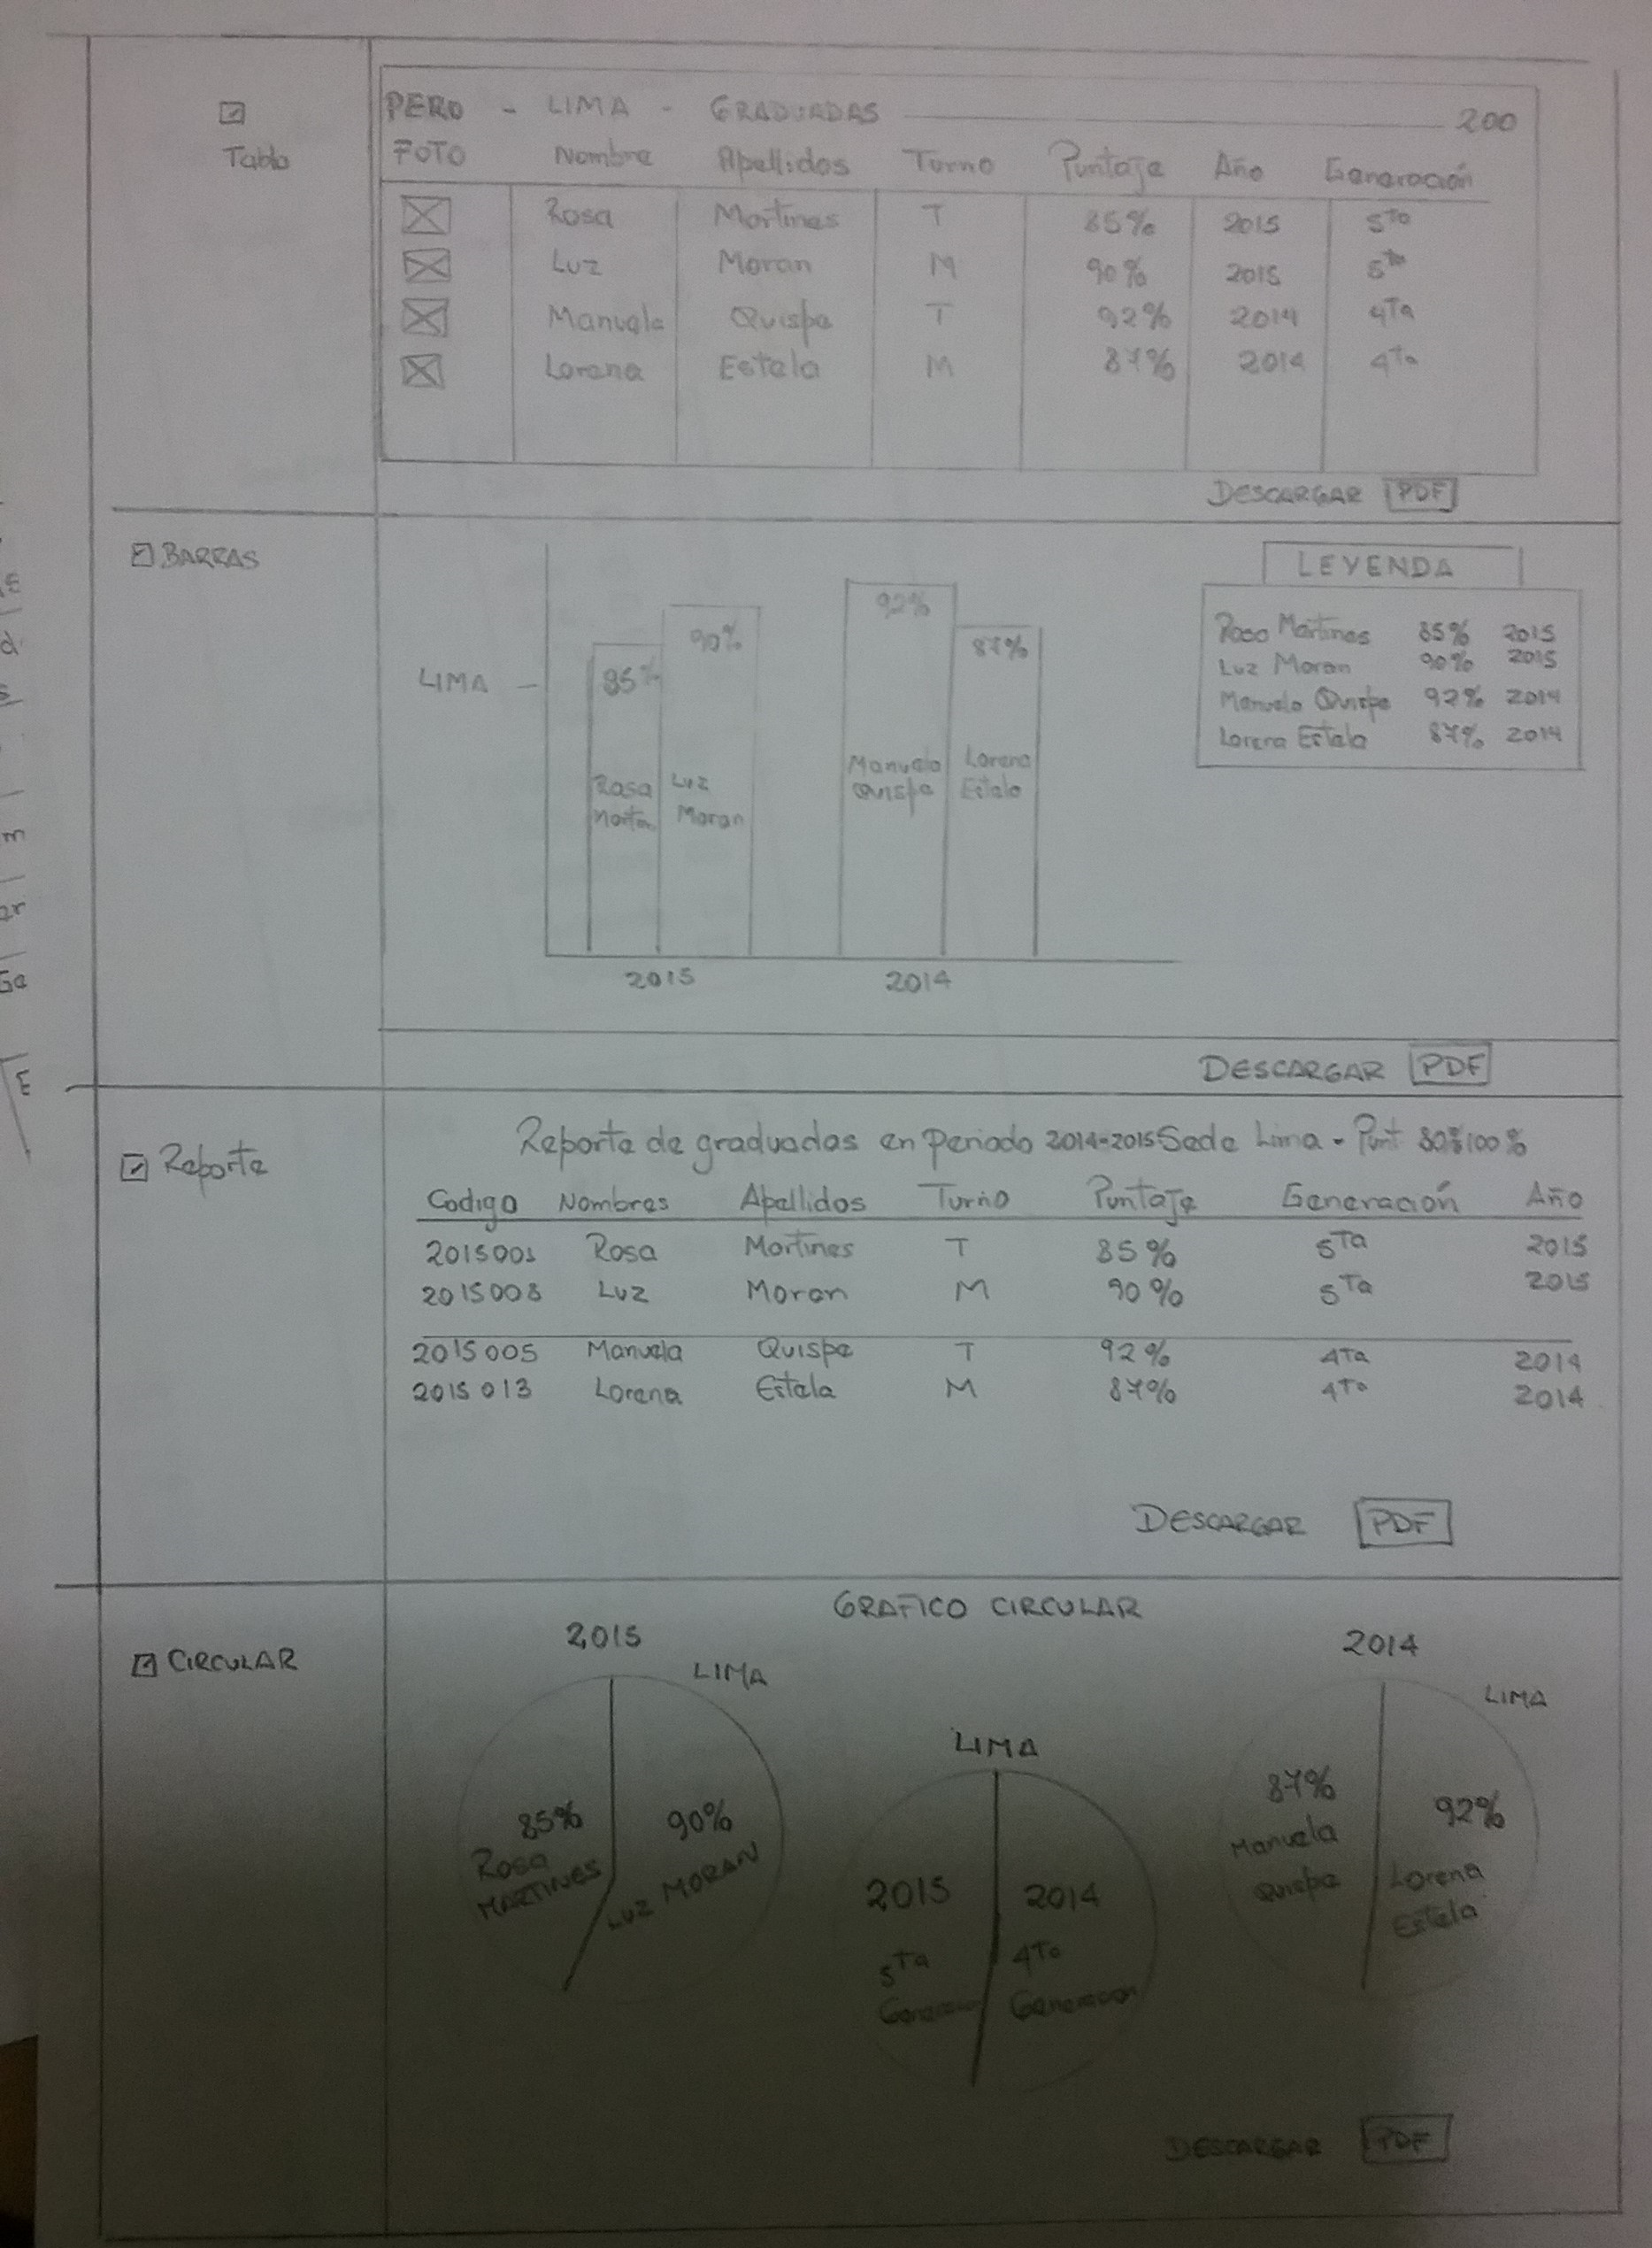 Tabla
PERO - LIMA - GRADUADAS 200
FOTO Nombre Apellidos Turno Puntaje Año Generación
Rosa Martines T 85% 2015 5to
Luz Moran M 90% 2015 5to
Manuela Quispe T 92% 2014 4Ta
Lorena Estela M 87% 2014 4Ta
DESCARGAR PDF
BARRAS
LEYENDA
Rosa Martines 85% 2015
Luz Moran 90% 2015
Manuela Quispe 92% 2014
Lorena Estela 87% 2014
LIMA
85%
90%
92%
87%
Rosa
Luz
Moran
Manuela
Quispe
Lorena
Estela
2015 2014
DESCARGAR PDF
Reporte
Reporte de graduadas en Periodo 2014-2015 Sede Lima - Punt 80% 100%
Codigo Nombres Apellidos Turno Puntaje Generación Año
2015001 Rosa Martines T 85% 5Ta 2015
2015008 Luz Moran M 90% 5Ta 2015
2015005 Manuela Quispe T 92% 4Ta 2014
2015013 Lorena Estela M 87% 4Ta 2014
DESCARGAR PDF
CIRCULAR
GRAFICO CIRCULAR
2015
LIMA
85%
Rosa
MARTINES
90%
LUZ MORAN
LIMA
2015
5Ta
Generacion
2014
4Ta
Generacion
2014
LIMA
87%
Manuela
Quispe
92%
Lorena
Estela
DESCARGAR PDF